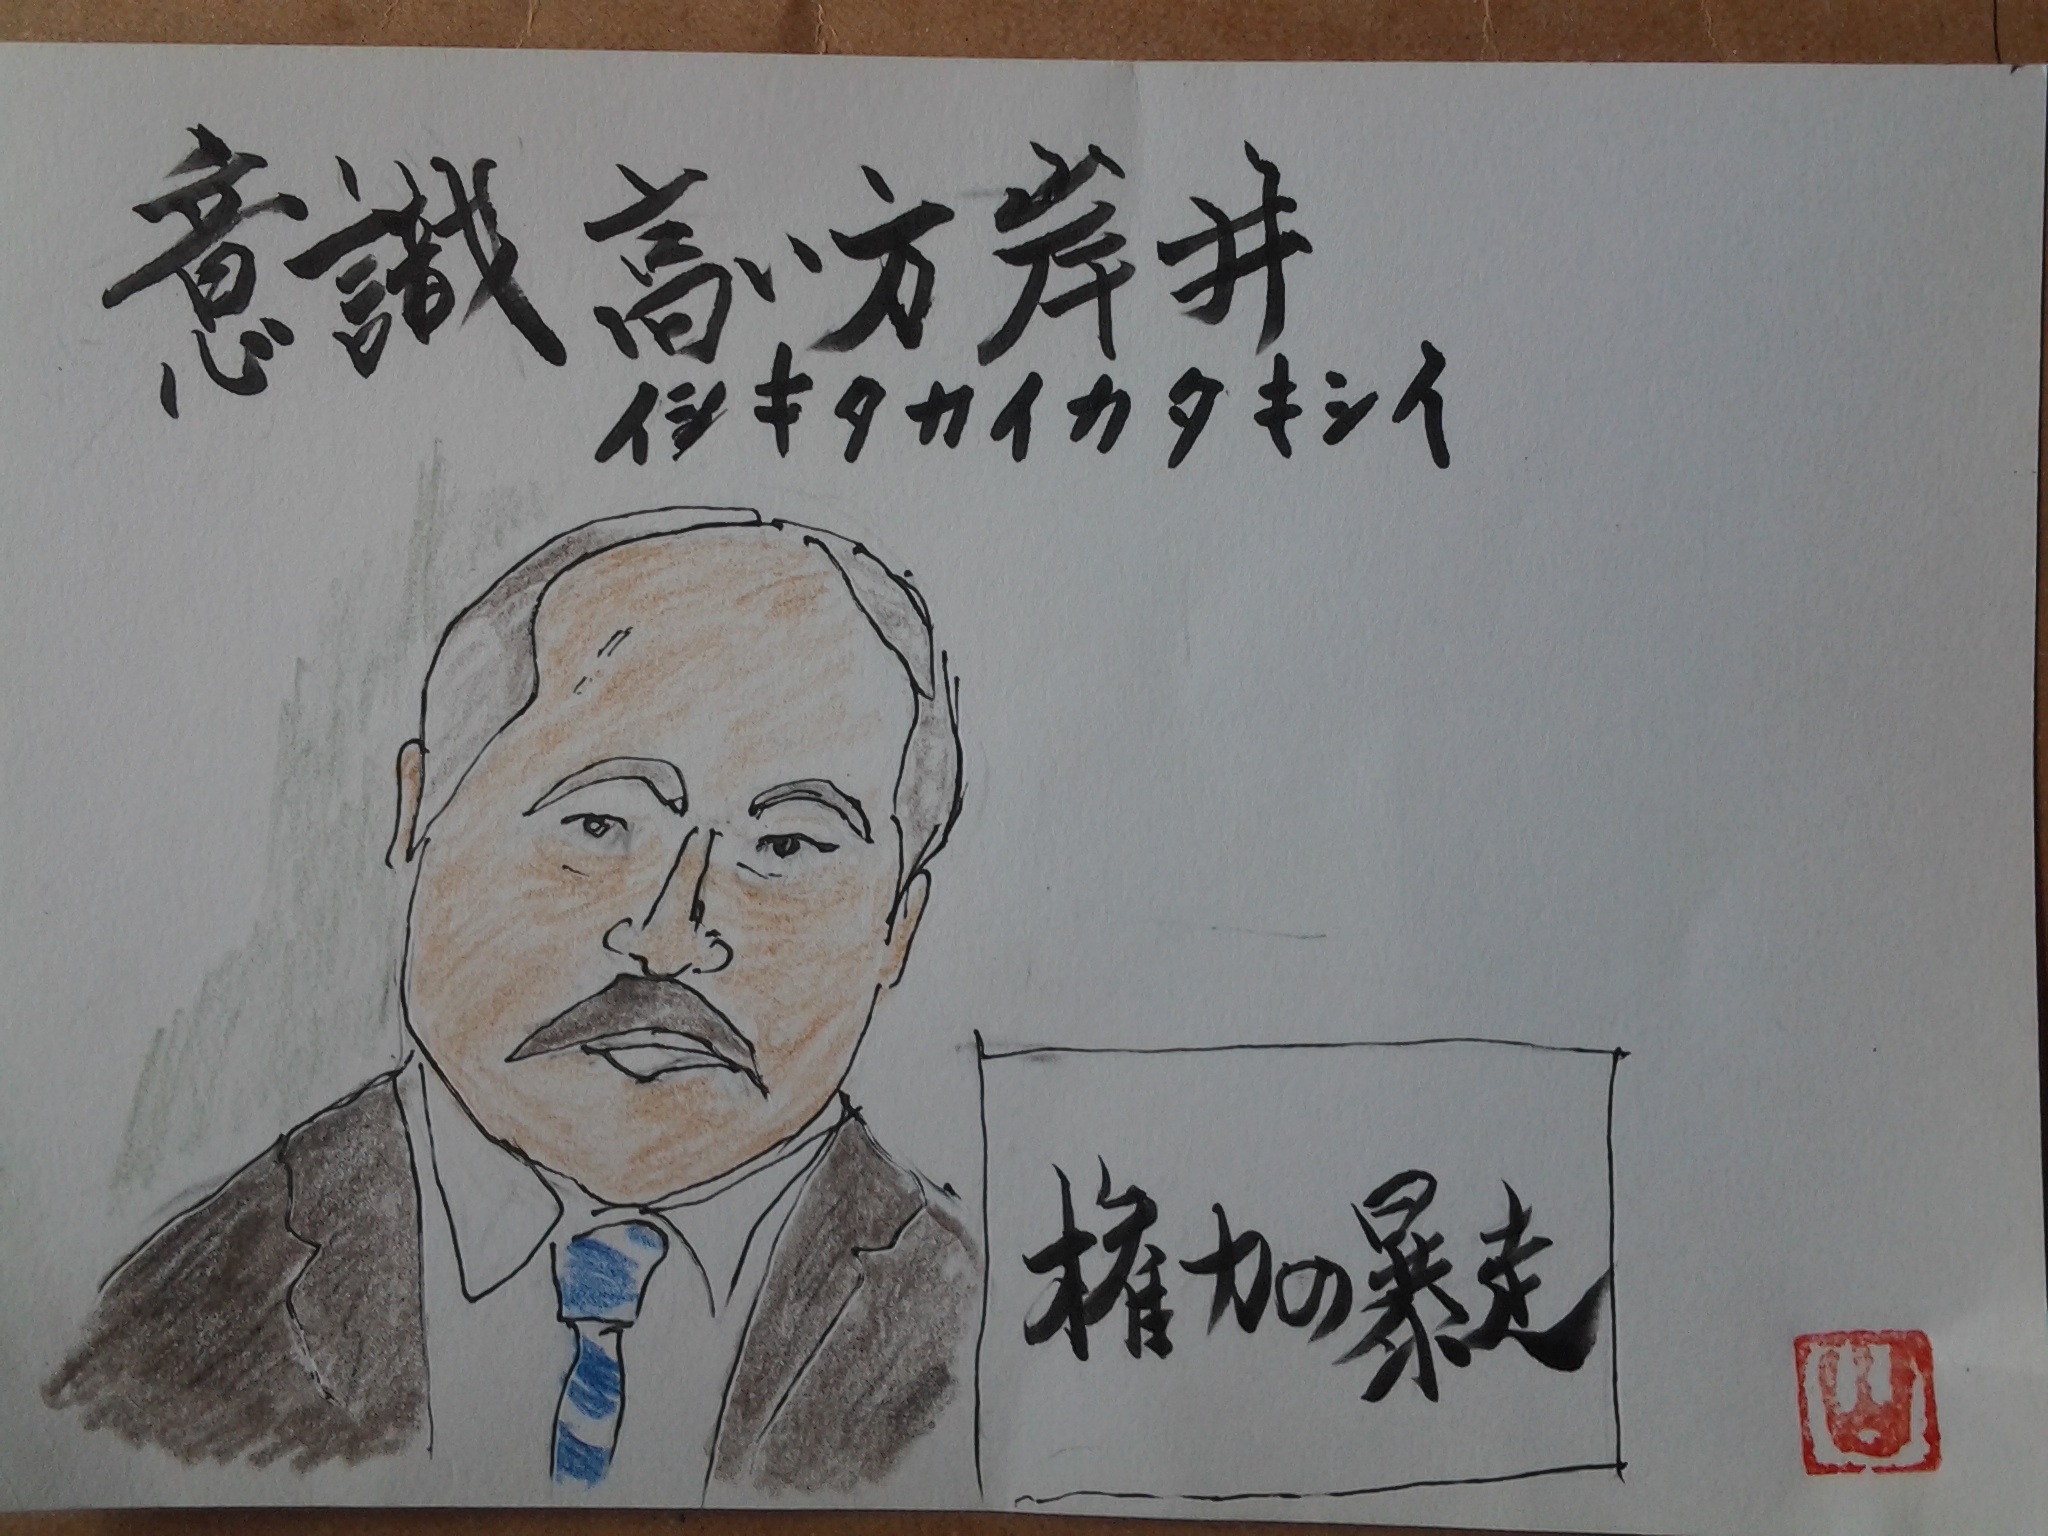 意識高い方岸井
イシキタカイカタキシイ
権力の暴走